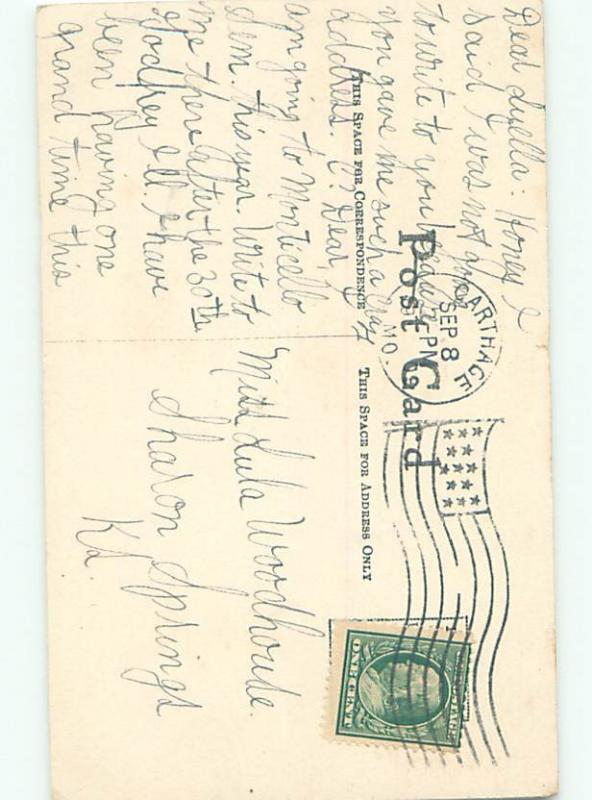 Dear Luella: Honey I
said I was not going
to write to you because
you gave me such a
address. O! Dear, I
am going to Monticello
Sem. this year. Write to
me there after the 20th
Godfrey Ill. I have
been having one
grand time this
Post Card
THIS SPACE FOR CORRESPONDENCE
THIS SPACE FOR ADDRESS ONLY
CARTHAGE
SEP 8
PM
MO.
Miss Lula Woodhouse.
Sharon Springs
Ks.
POSTAGE
ONE CENT